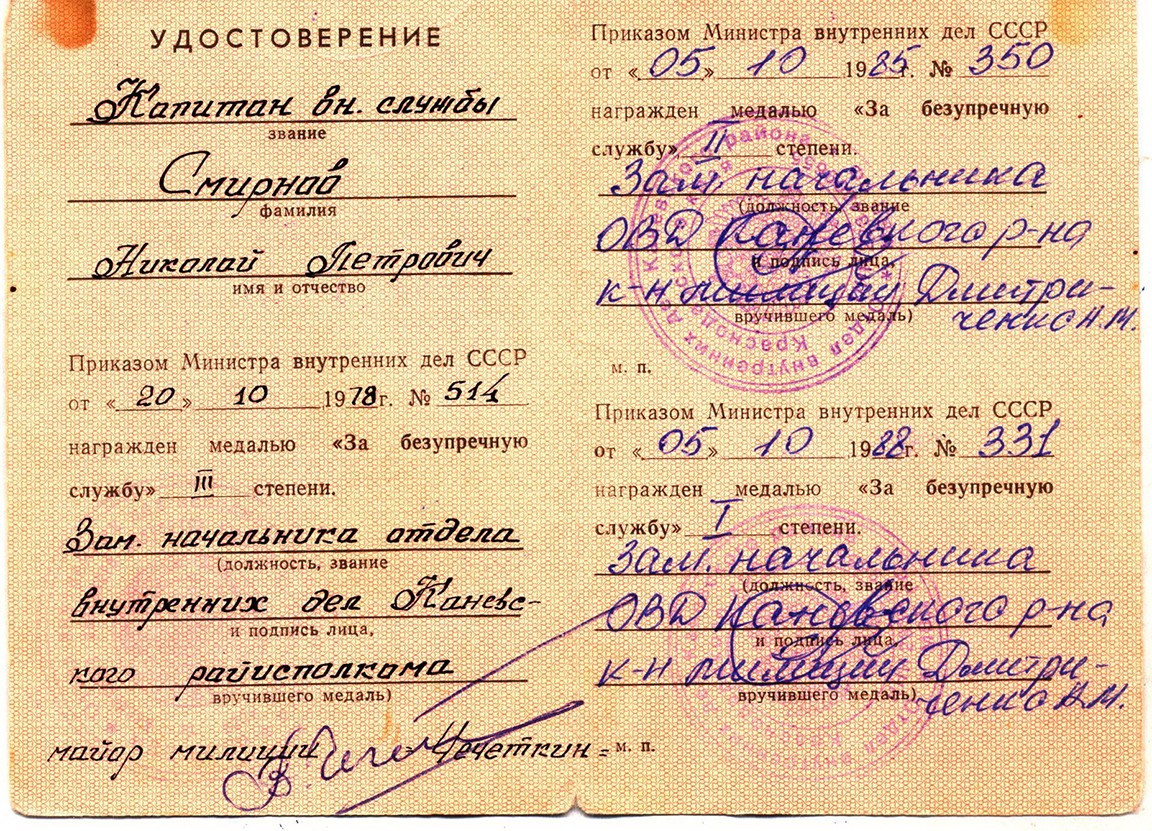 УДОСТОВЕРЕНИЕ
Капитан вн. службы
звание
Смирнов
фамилия
Николай Петрович
имя и отчество
Приказом Министра внутренних дел СССР
от «20» 10 1978г. № 514
награжден медалью «За безупречную
службу» III степени.
Зам. начальника отдела
(должность, звание
внутренних дел Каневс-
и подпись лица,
кого райисполкома
вручившего медаль)
майор милиции Чечеткин
Приказом Министра внутренних дел СССР
от «05» 10 1985г. № 350
награжден медалью «За безупречную
службу» II степени.
Зам. начальника
(должность, звание
ОВД Каневского р-на
и подпись лица,
к-н милиции Дмитри-
ченко
вручившего медаль)
м. п.
Приказом Министра внутренних дел СССР
от «05» 10 1988г. № 331
награжден медалью «За безупречную
службу» I степени.
Зам. начальника
(должность, звание
ОВД Каневского р-на
и подпись лица,
к-н милиции Дмитри-
вручившего медаль)
ченко
м. п.